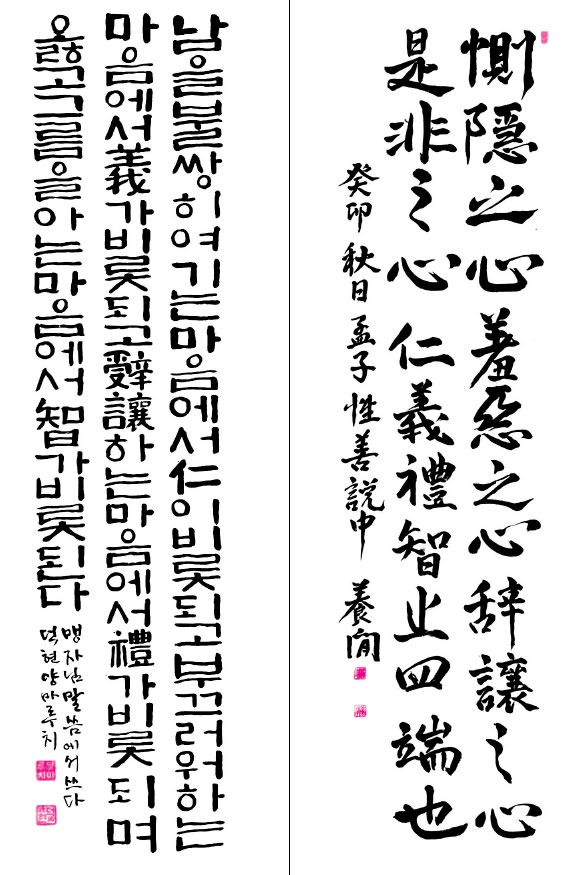 惻隱之心羞惡之心辞讓之心
是非之心仁義禮智止四端也
癸卯 秋日 孟子 性善說中 養閒
남을불쌍히여기는마음에서仁이비롯되고부끄러워하는
마음에서義가비롯되고辤讓하는마음에서禮가비롯되며
옳고그름을아는마음에서智가비롯된다
맹자님말씀에서쓰다
덕현양마루치